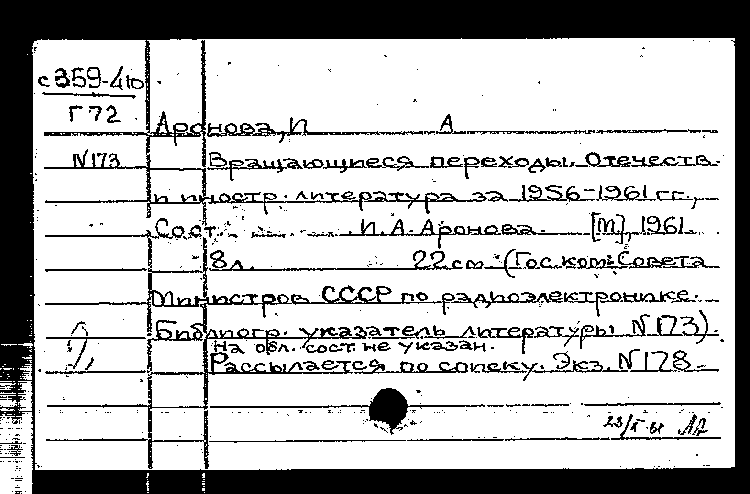 с359-4ю
Г72
Аронова, И А
N173 Вращающиеся переходы. Отечеств.
и иностр. литература за 1956-1961 гг.,
Сост. И.А. Аронова. [М], 1961.
8л. 22см. (Гос. ком. Совета
Министров СССР по радиоэлектронике.
Библиогр. указатель литературы N173).
На обл. сост. не указан.
Рассылается по списку. Экз. N178